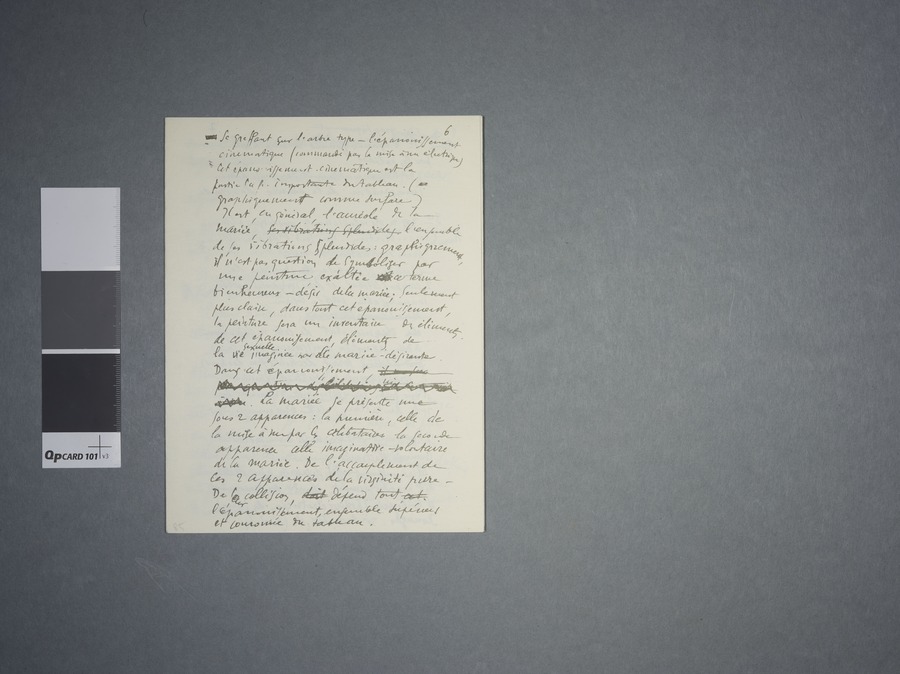 6
Se greffant sur l'arbre type – l'épanouissement
cinématique (commandé par la mise à nu électrique)
Cet épanouissement cinématique est la
partie la + importante du tableau. (
graphiquement comme surface)
Il est, en général, l'auréole de la
mariée, ses vibrations splendides l'ensemble
de ses vibrations splendides: graphiquement,
il n'est pas question de symboliser par
une peinture exaltée ce terme
bienheureux – désir de la mariée; seulement
plus claire, dans tout cet épanouissement,
la peinture sera un inventaire des éléments
de cet épanouissement, éléments de
la vie sexuelle imaginée par elle mariée-désirante.
Dans cet épanouissement,
La mariée se présente nue
sous 2 apparences: la première, celle de
la mise à nu par les célibataires, la seconde
apparence celle imaginative-volontaire
de la mariée. De l'accouplement de
ces 2 apparences de la virginité pure –
De leur collision, dépend tout cet
l'épanouissement, ensemble supérieur
et couronne du tableau.
QpCARD 101 v3